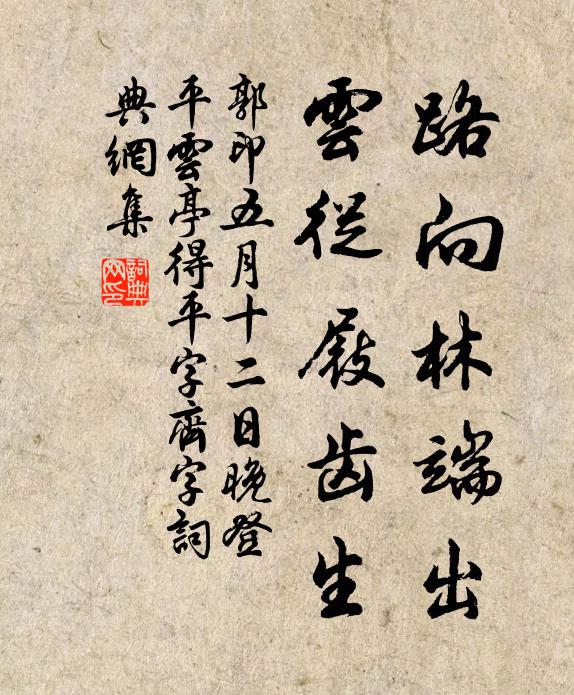 路向林端出
雲從屐齿生
郭印五月十二日晚登
平雲亭得平字齊字詞
典網集
詞典網印